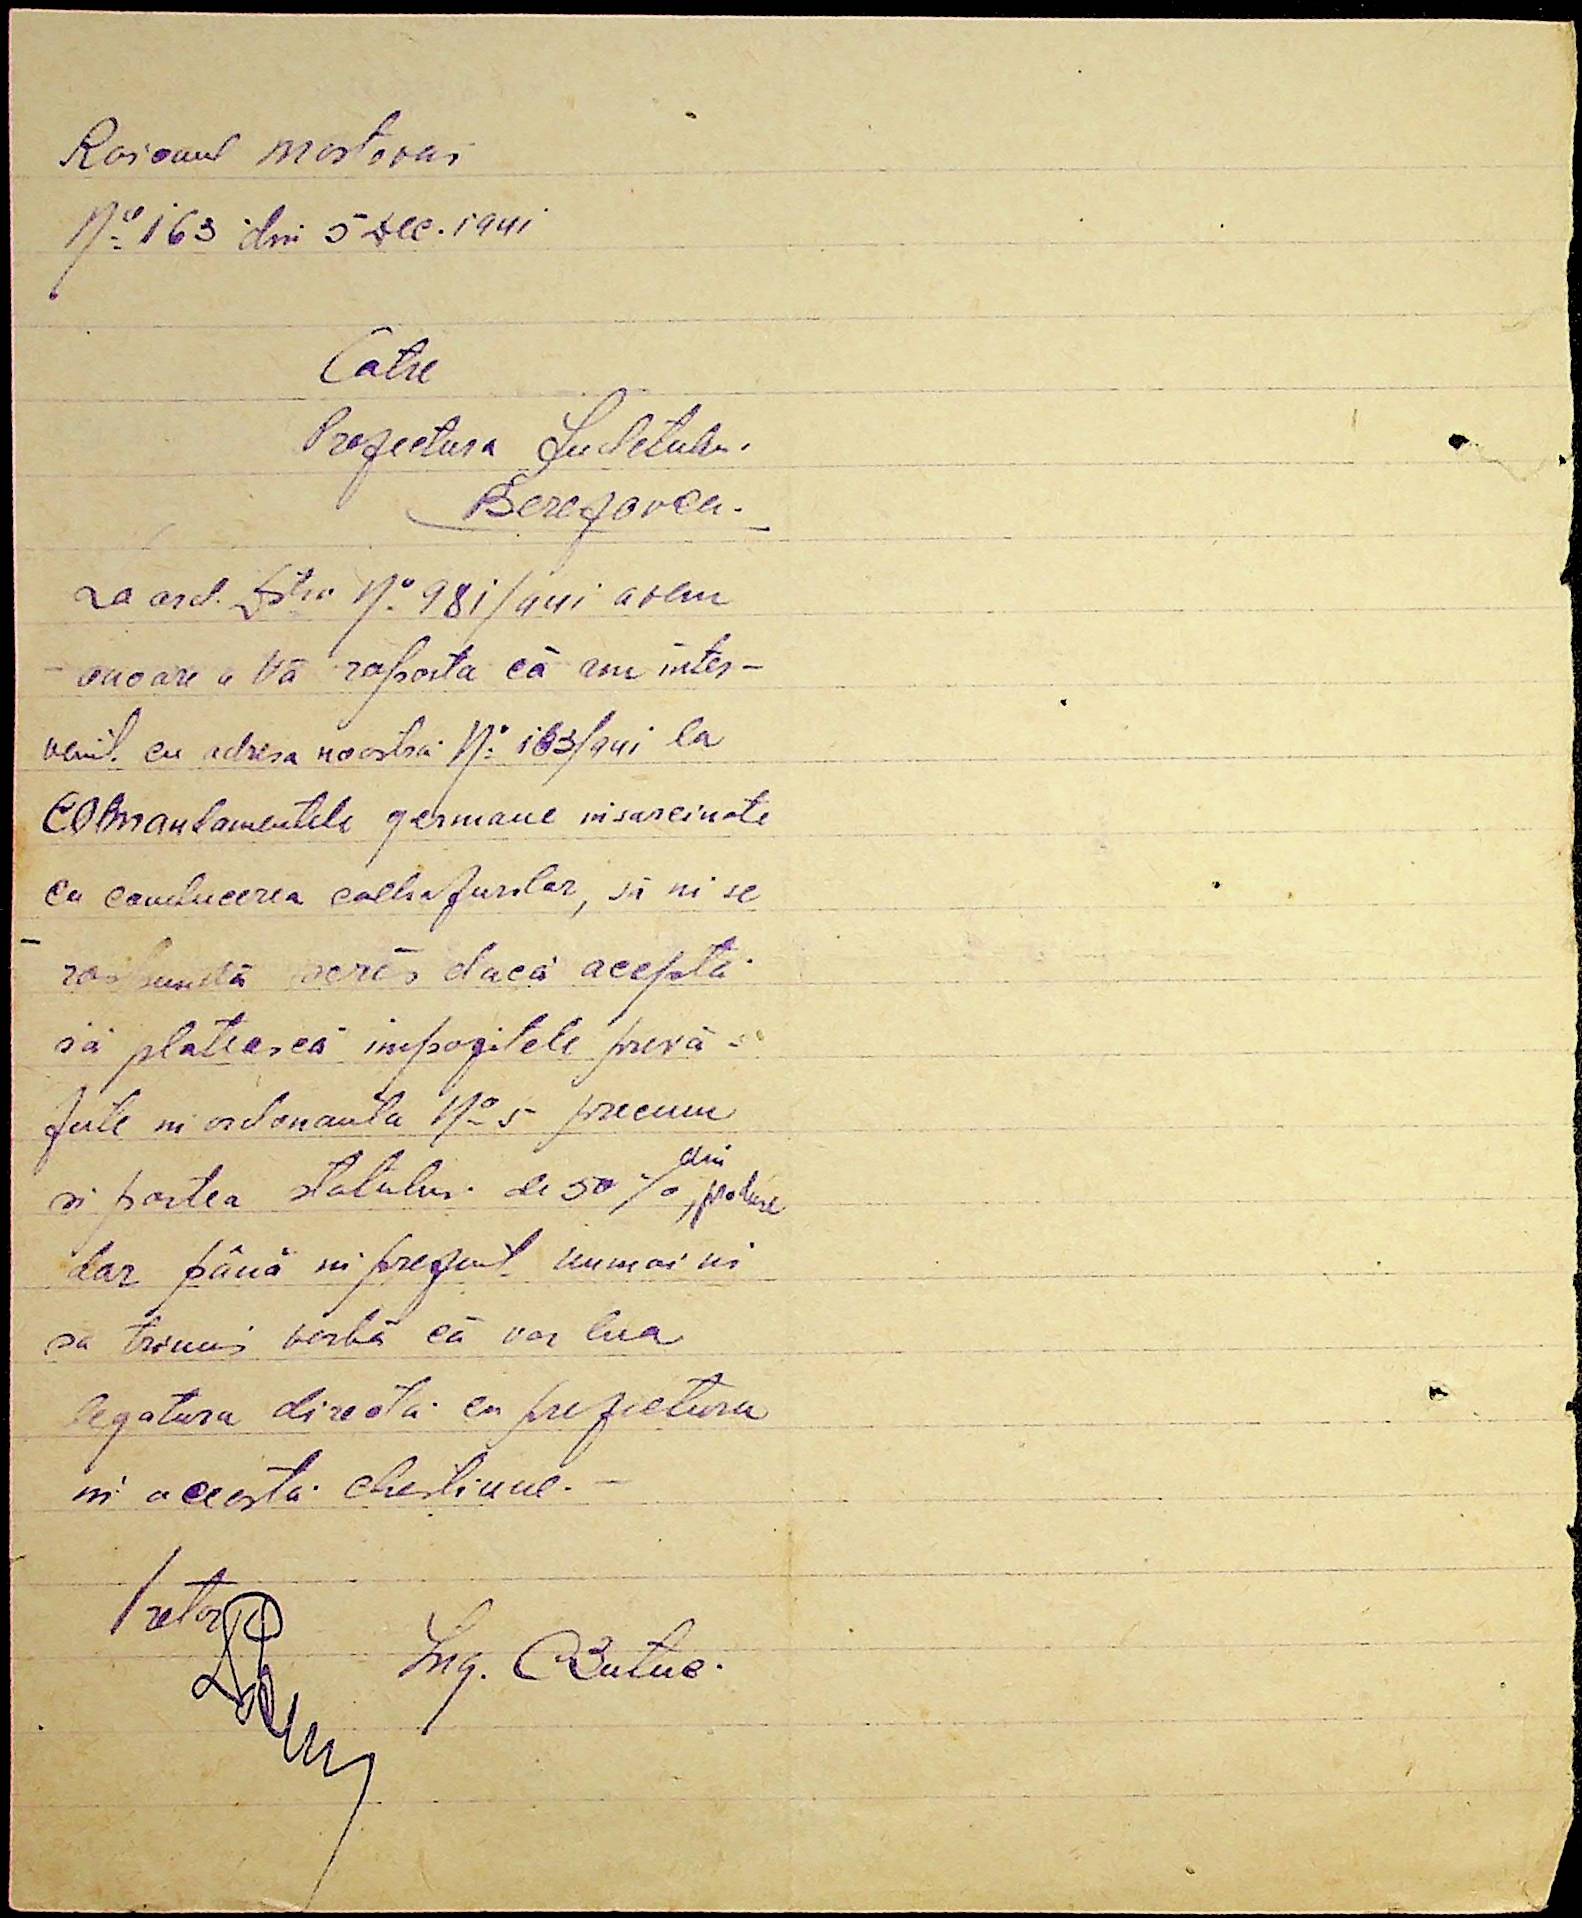 Raionul Mostovoi
No 163 din 5 Dec. 1941
Catre
Prefectura Judetului
Berezovca.
La ord. Dstra No 981/941 avem
onoare a Vă raporta că am inter-
venit cu adresa noastră No 163/941 la
Comandamentele germane insarcinate
cu conducerea colhozurilor, să ni se
raspundă scris dacă aceptă
să plateascá impozitele prevă-
zute in ordonanta No 5 precum
si partea statului de 50% din produse
dar până in prezent numai ni
sa trimis vorbă că vor lua
legatura directă cu prefectura
in aceastá chestiune.-
Pretor
Ing. Butuc.